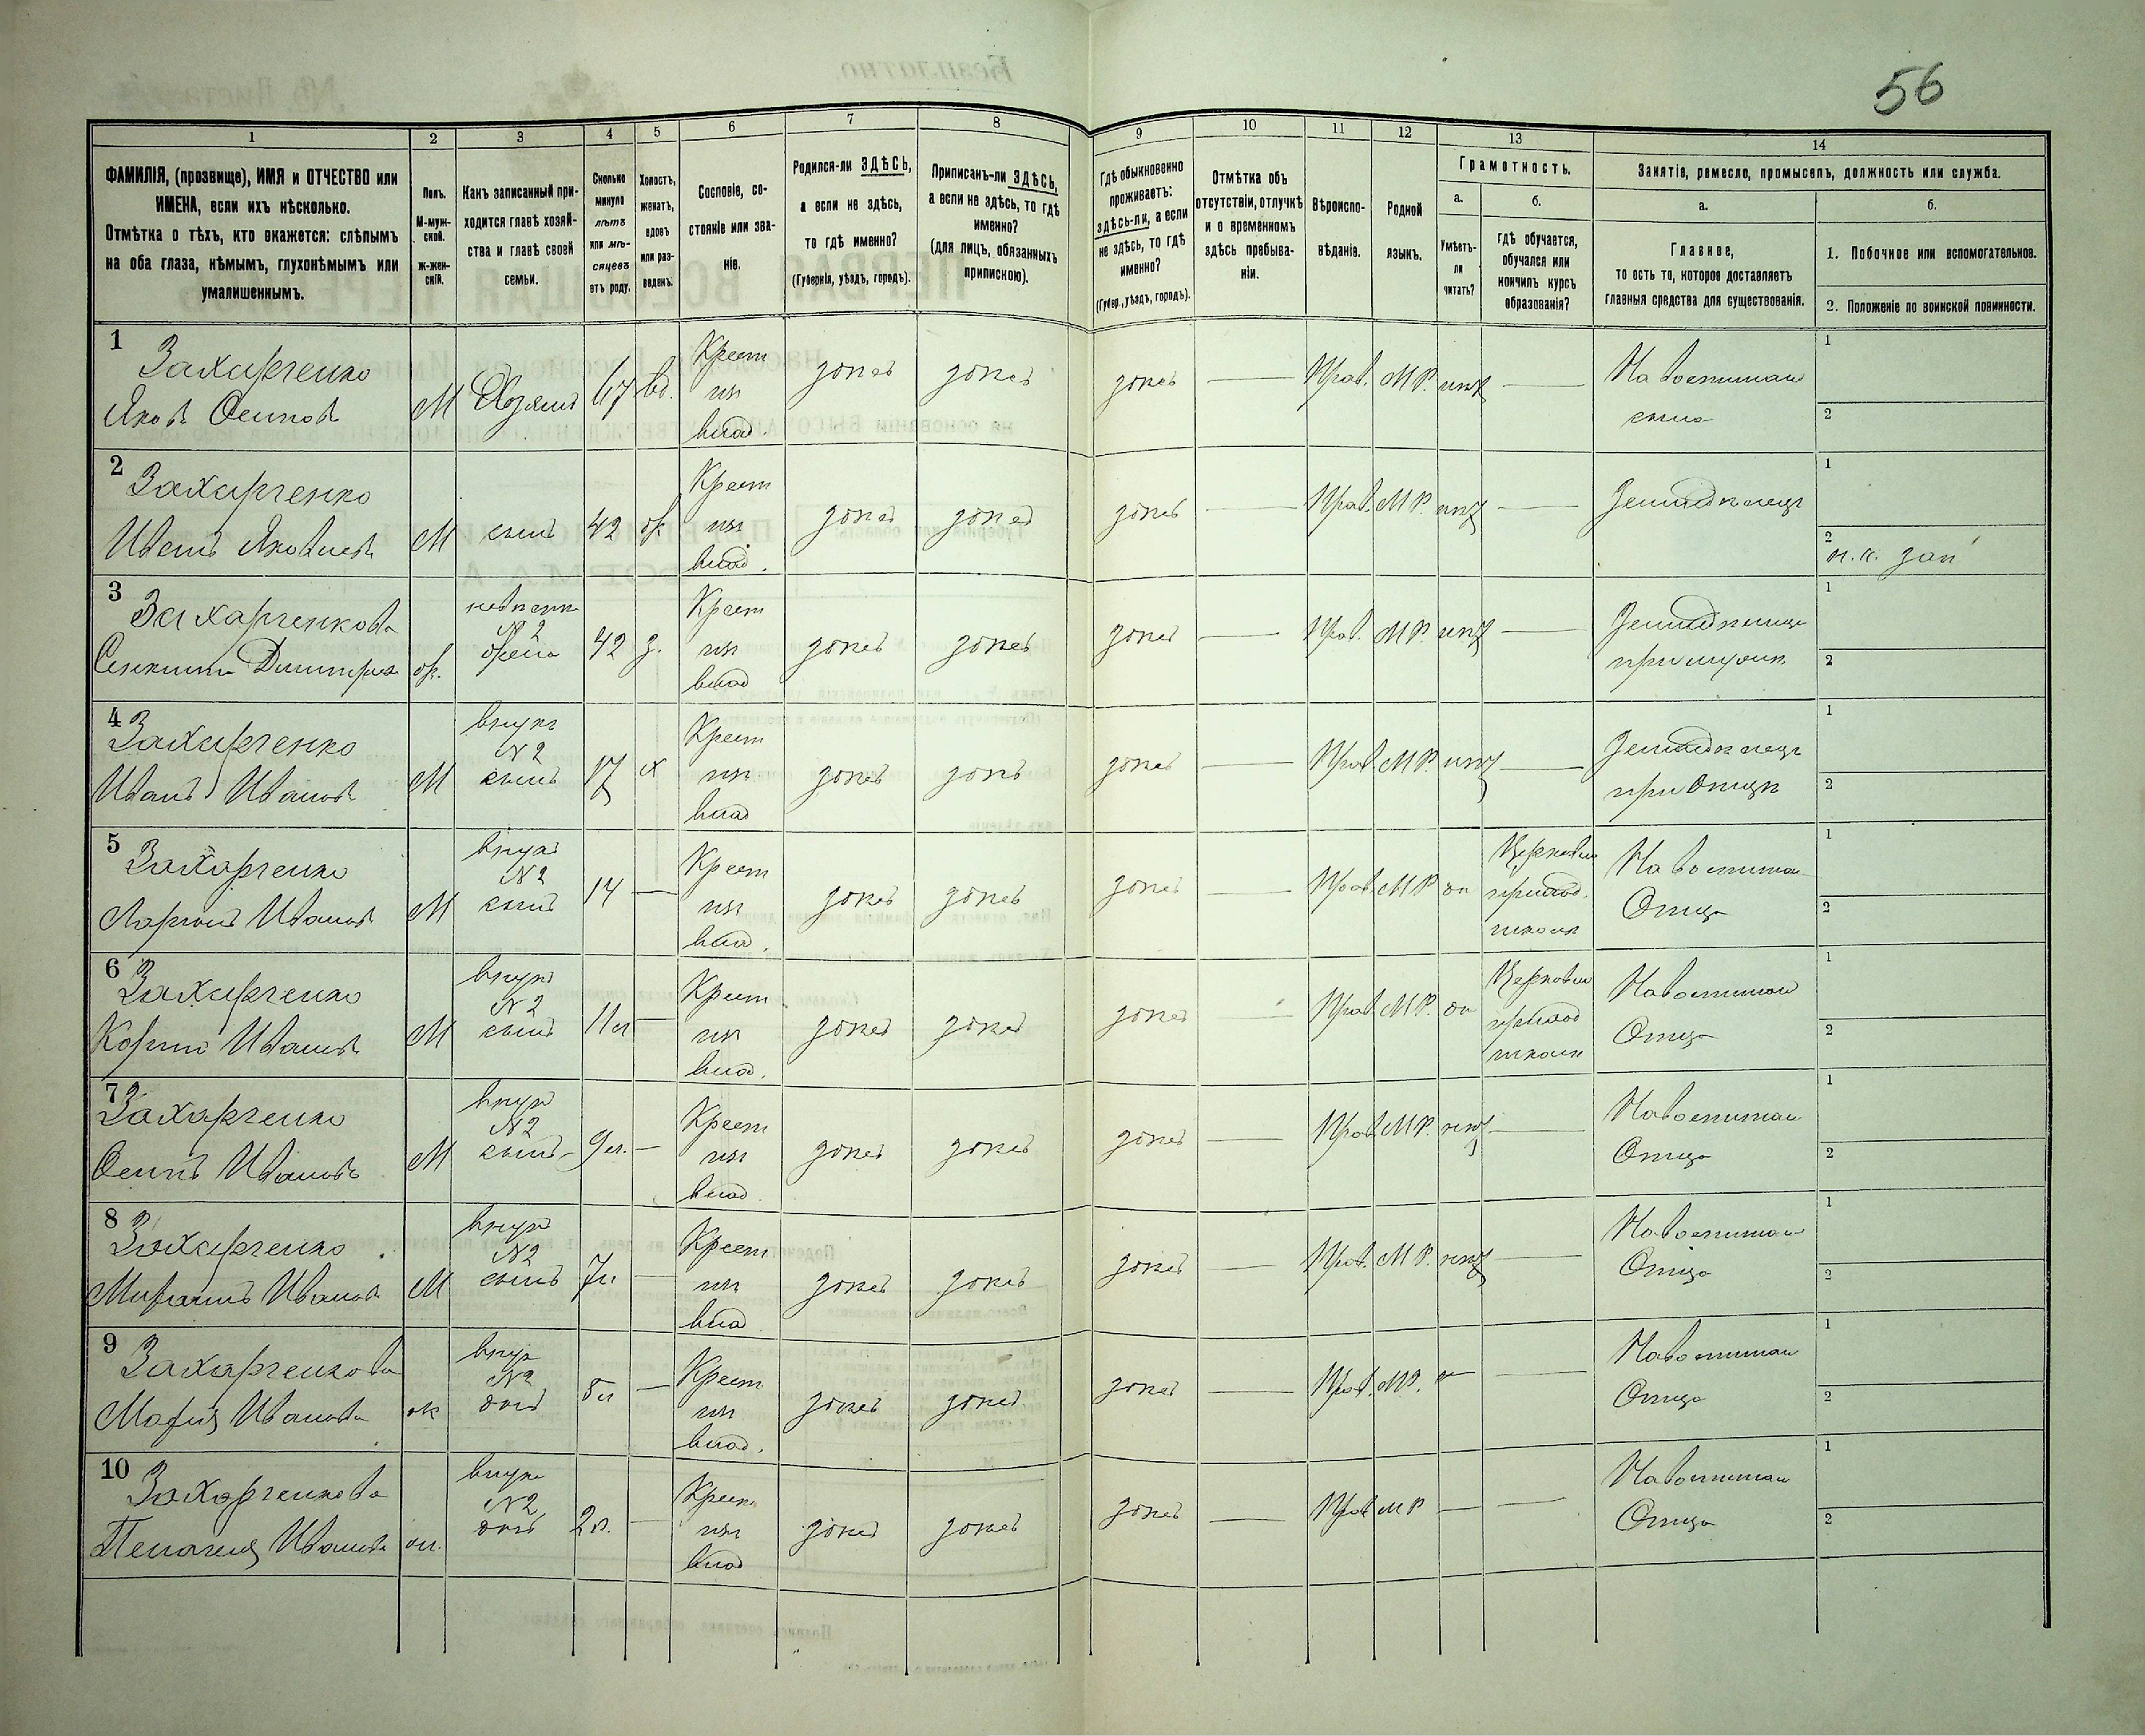 56
1
2
3
4
5
6
7
8
9
10
11
12
13
14
ФАМИЛІЯ, (прозвище), ИМЯ и ОТЧЕСТВО или
ИМЕНА, если ихъ нѣсколько.
Отмѣтка о тѣхъ, кто окажется: слѣпымъ
на оба глаза, нѣмымъ, глухонѣмымъ или
умалишеннымъ.
Полъ.
М-муж-
ской.
Ж-жен-
скій.
Какъ записанный при-
ходится главѣ хозяй-
ства и главѣ своей
семьи.
Сколько
минуло
лѣтъ
или мѣ-
сяцевъ
отъ роду.
Холостъ,
женатъ,
вдовъ
или раз-
веденъ.
Сословіе, со-
стояніе или зва-
ніе.
Родился-ли ЗДѢСЬ,
а если не здѣсь,
то гдѣ именно?
(Губернія, уѣздъ, городъ).
Приписанъ-ли ЗДѢСЬ,
а если не здѣсь, то гдѣ
именно?
(для лицъ, обязанныхъ
припискою).
Гдѣ обыкновенно
проживаетъ:
здѣсь-ли, а если
не здѣсь, то гдѣ
именно?
(Губер., уѣздъ, городъ).
Отмѣтка объ
отсутствіи, отлучкѣ
и о временномъ
здѣсь пребыва-
ніи.
Вѣроиспо-
вѣданіе.
Родной
языкъ.
Грамотность.
а.
Умѣетъ-
ли
читать?
б.
гдѣ обучается,
обучался или
кончилъ курсъ
образованія?
Занятіе, ремесло, промыселъ, должность или служба.
а.
Главное,
то есть то, которое доставляетъ
главныя средства для существованія.
б.
1. Побочное или вспомогательное.
2. Положеніе по воинской повинности.
1
Захарченко
Яковъ Осиповъ
М
Хозяинъ
67
вд.
Крест
изъ
влад.
здѣсь
здѣсь
здѣсь
—
Прав.
М Р.
нѣтъ
—
На воспитан
сына
1
2
2
Захарченко
Иванъ Яковлевъ
М
сынъ
42
ж
Крест
изъ
влад.
здѣсь
здѣсь
здѣсь
—
Прав.
М Р.
нѣтъ
—
Земледѣлецъ
1
2
3
Захарченкова
Димитріева
ж.
невѣстка
№ 2
жена
42
з.
Крест
изъ
влад
здѣсь
здѣсь
здѣсь
—
Прав.
М Р.
нѣтъ
—
Земледѣлица
при мужѣ
1
2
4
Захарченко
Иванъ Ивановъ
М
внукъ
№ 2
сынъ
17
х
Крест
изъ
влад
здѣсь
здѣсь
здѣсь
—
Прав.
М Р.
нѣтъ
—
Земледѣлецъ
при Отцѣ
1
2
5
Захарченко
Ларіонъ Ивановъ
М
внукъ
№ 2
сынъ
14
—
Крест
изъ
влад.
здѣсь
здѣсь
здѣсь
—
Прав.
М Р
да
Церковно
приход.
школѣ
На воспитан
Отца
1
2
6
Захарченко
Ивановъ
М
внукъ
№ 2
сынъ
11 л
—
Крест
изъ
влад.
здѣсь
здѣсь
здѣсь
—
Прав.
М Р.
да
Церковно
приход
школѣ
На воспитан
Отца
1
2
7
Захарченко
Осипъ Ивановъ
М
внукъ
№ 2
сынъ
9 л.
—
Крест
изъ
влад.
здѣсь
здѣсь
здѣсь
—
Прав.
М Р.
нѣтъ
—
На воспитан
Отца
1
2
8
Захарченко
Ивановъ
М
внукъ
№ 2
сынъ
7 л
—
Крест
изъ
влад
здѣсь
здѣсь
здѣсь
—
Прав.
М Р.
нѣтъ
—
На воспитан
Отца
1
2
9
Захарченкова
Марія Иванова
ж
внук
№ 2
дочь
5 л
—
Крест
изъ
влад.
здѣсь
здѣсь
здѣсь
—
Прав.
М Р.
—
—
На воспитан
Отца
1
2
10
Захарченкова
Пелагея Иванова
ж.
внука
№ 2
дочь
2 г.
—
Крест
изъ
влад
здѣсь
здѣсь
здѣсь
—
Прав
М Р
—
—
На воспитан
Отца
1
2